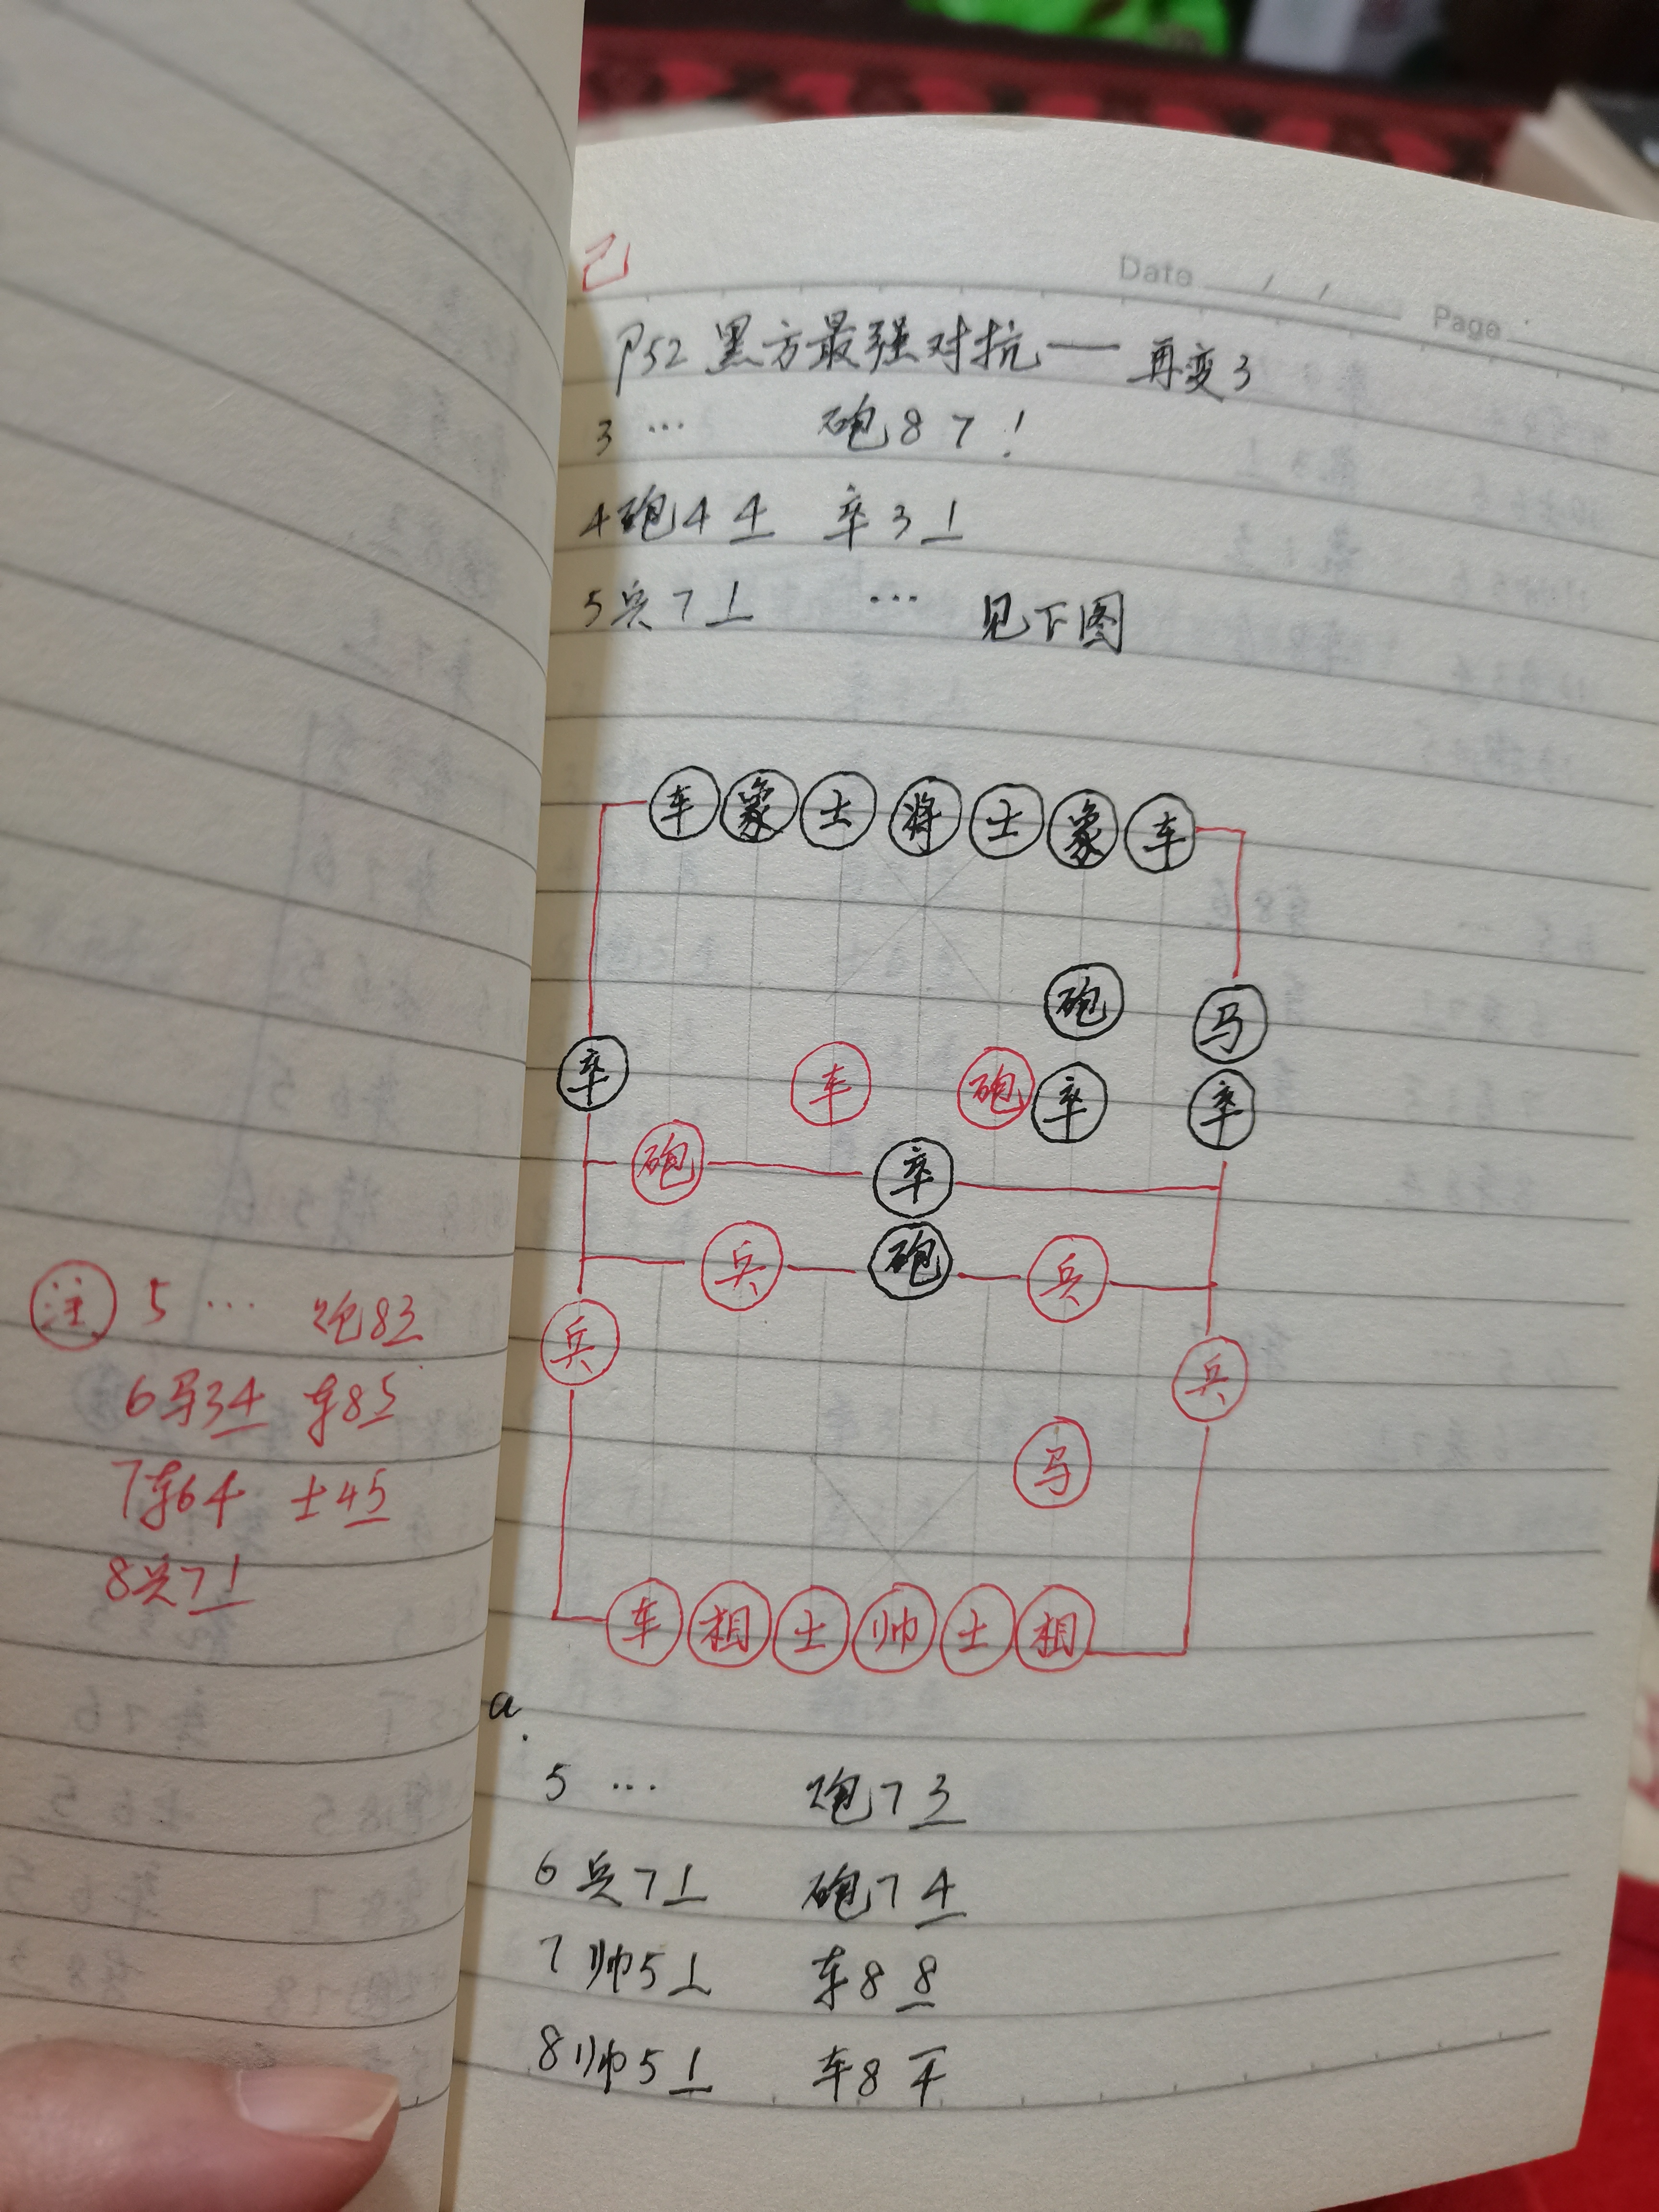 己
Date / /
Page
P52 黑方最强对抗—再变3
3 … 砲87!
4砲44 卒31
5兵71 … 见下图
车象士将士象车
砲
马
卒
车
砲
卒
卒
砲
卒
兵
砲
兵
兵
兵
马
车相士帅士相
注 5 … 炮83
6马34 车85
7车64 士45
8兵71
a.
5 … 炮73
6兵71 砲74
7帅51 车88
8帅51 车84